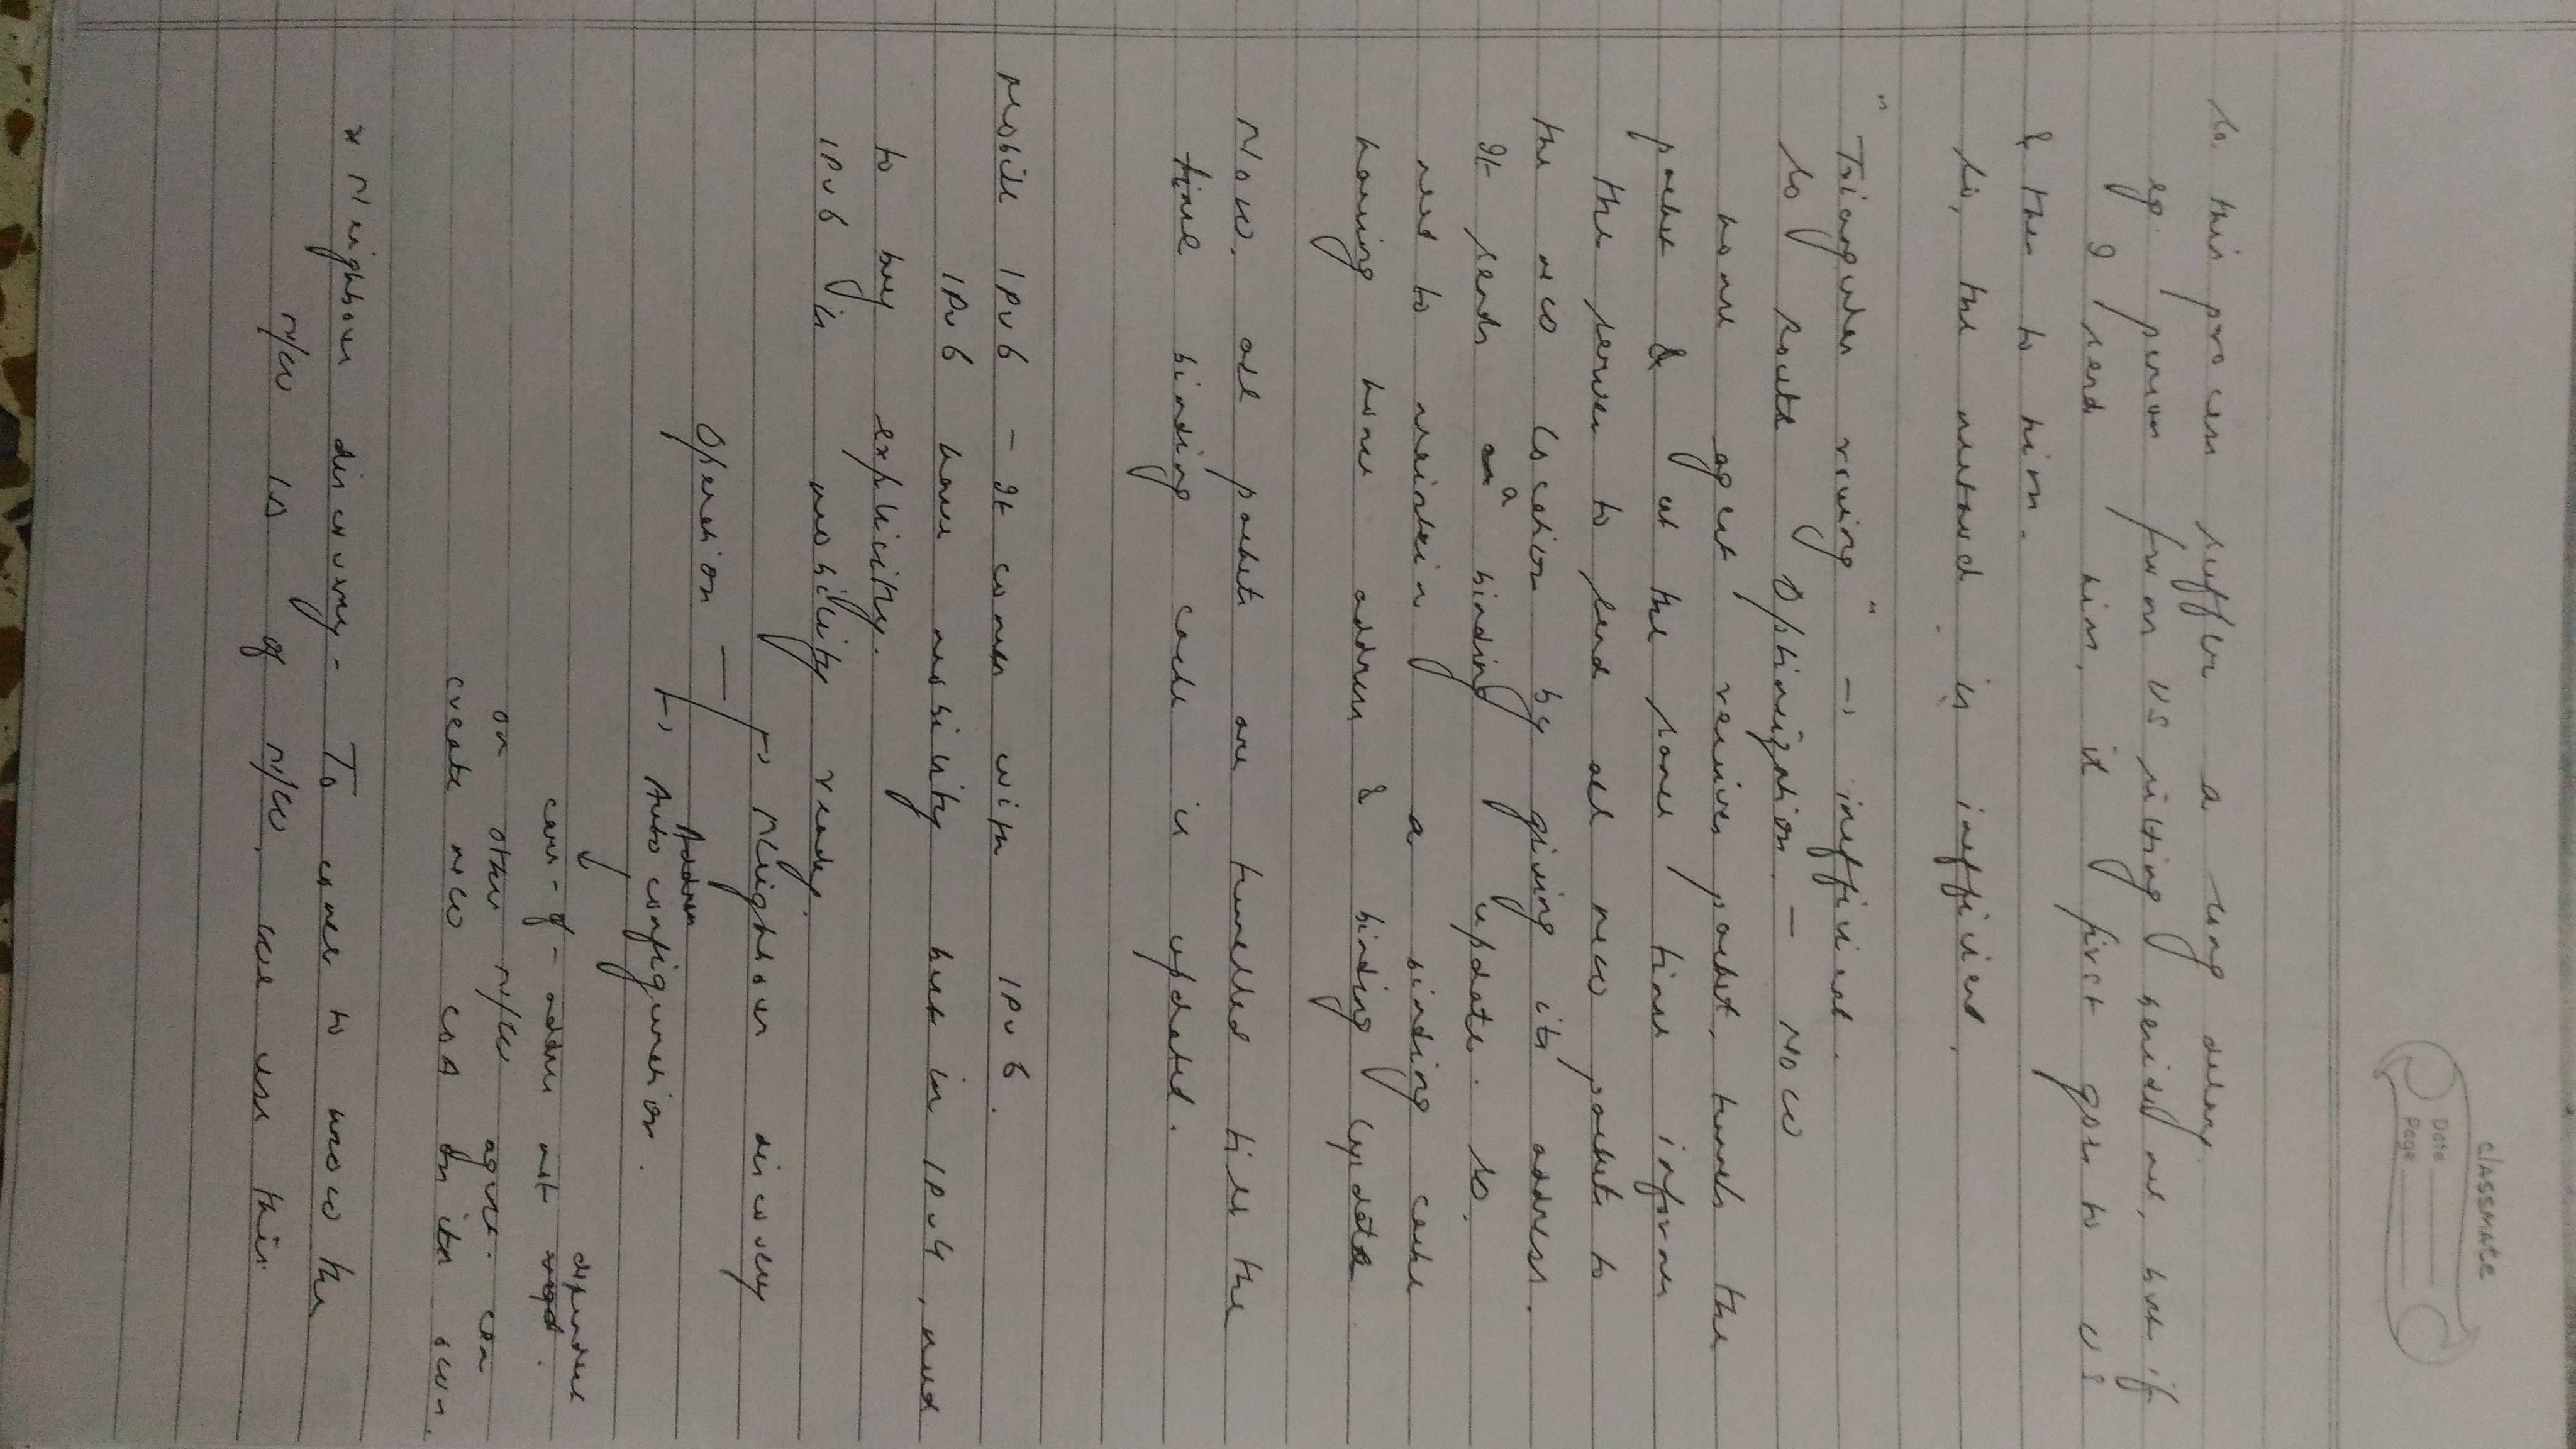 classmate
Date
Page
So this process suffer a long delay
eg. person from US sitting beside me, but if
I send him, it first goes to US
& then to him.
So, the method is inefficient,
"Triangular rouing" → inefficient.
So Route Optimization. - Now
home agent receives packet, tunnels the
packet & at the same time informs
the server to send all new packets to
the new location by giving its address.
It sends a binding update. So,
need to maintain a binding cache
having home address & binding update
Now, all packets are tunelled till the
time binding cache is updated.
Mobile IPv6 - It comes with IPv6.
IPv6 have mobility but in IPv4, need
to buy explicitly.
IPv6 is mobility ready.
→ Neighbour discovery
Operation -
Address
→ Auto configuration.
↓
care-of-address not dependent
on other N/W agent. can
create new COA on its own.
* Neighbour discovery - To come to know the
N/W ID of N/W, we use this